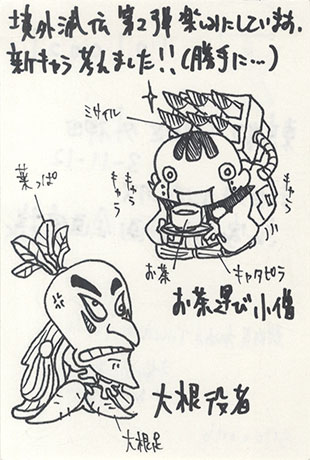 境外滅伝 第2弾 楽しみにしています。
新きゃら 考えました!!(勝手に…)
ミサイル
葉っぱ
きゅら
きゅら
きゅら
お茶
キャタピラ
お茶運び小僧
大根役者
大根足